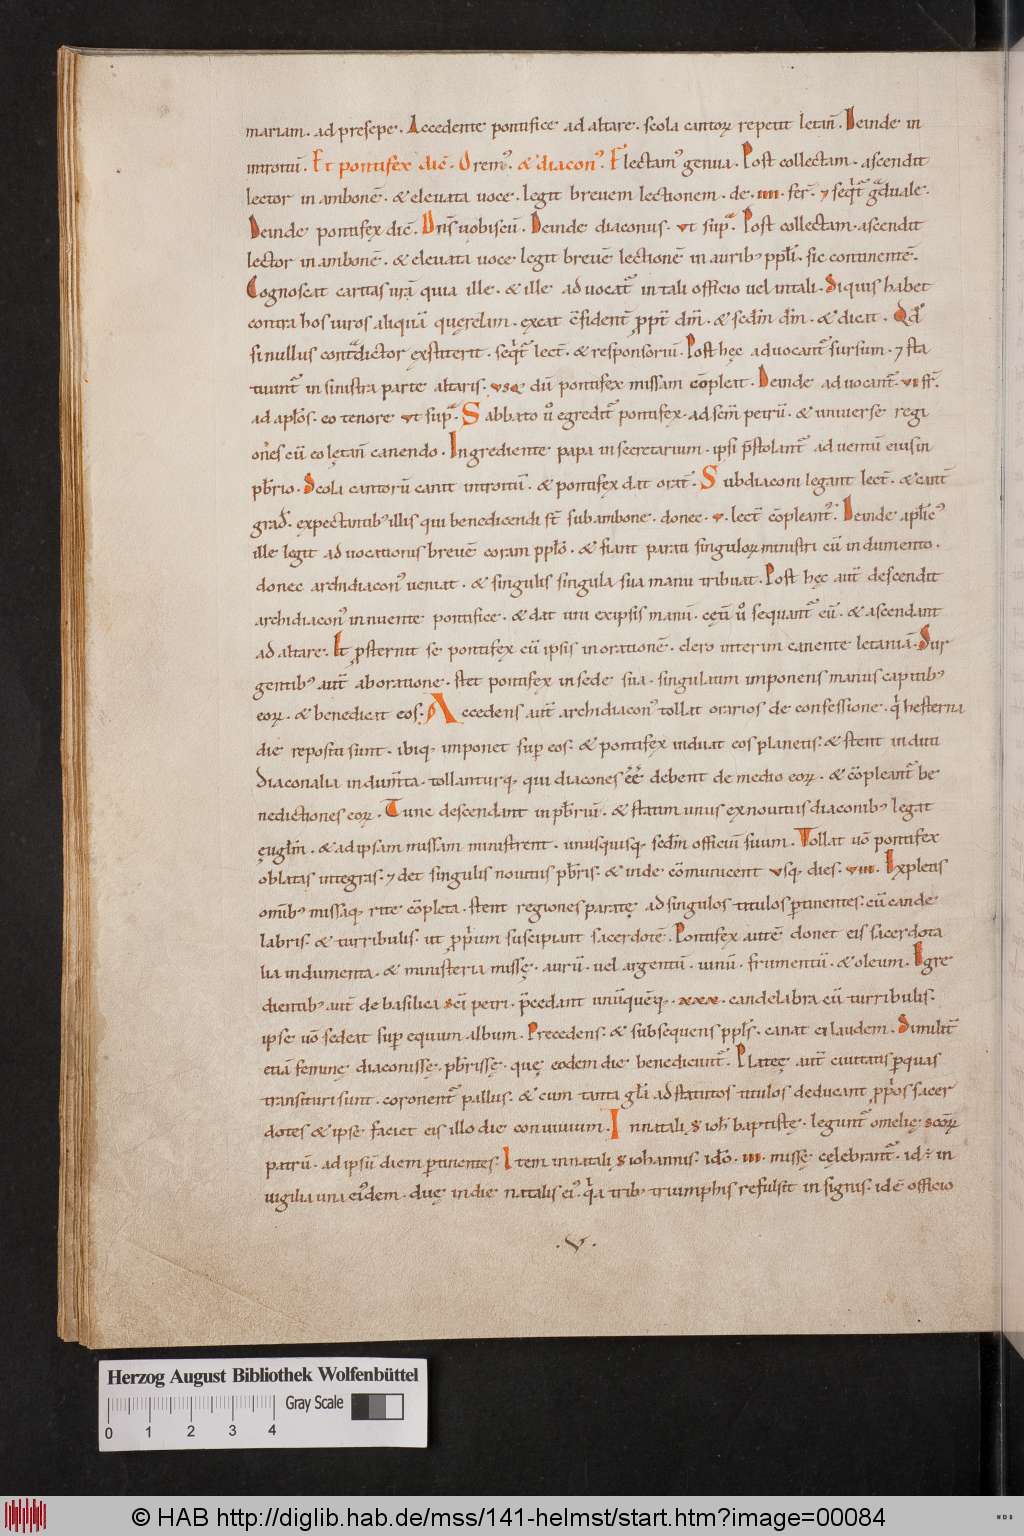 mariam. ad presepe. Accedente pontifice ad altare. scola cantoꝝ repetit letan̄. Deinde in
introitū. Et pontifex dic̄. Oremꝰ. & diaconꝰ. Flectamꝰ genua. Post collectam. ascendit
lector in ambonē. & eleuata uoce. legit breuem lectionem. de. IIII. fer̄. ⁊ seqͥt̄ gͣduale.
Deinde pontifex dic̄. Dn̄s uobiscū. Deinde diaconus. ut sup̄ͣ. Post collectam. ascendit
lector in ambonē. & eleuata uoce legit breuē lectionē in auribꝰ ppl̄i. sic continentē.
Cognoscat caritas ur̄a quia ille. & ille aduocat̄ in tali officio uel in tali. Siquis habet
contra hos uiros aliquā quęrelam. exeat c̄fident̄ ꝓpt̄ dm̄. & scd̄m dm̄. & dicat. Qd̄
si nullus contͣdictor exstiterit. seqͥt̄ lect̄. & responsoriū. Post hęc aduocant̄ sursum. ⁊ sta
tuunt̄ in sinistra parte altaris. usq̄ dū pontifex missam cōpleat. Deinde aduocant̄. VI ff̄.
ad apl̄os. eo tenore ut sup̄ͣ. Sabbato ū egredit̄ pontifex. ad scm̄ petrū. & uniuerse regi
on̄es cū eo lętan̄ canendo. Ingrediente papa in secretarium. ipsi p̄stolant̄ aduentū eius in
pb̄rio. Scola cantorū cantt introitū. & pontifex dat orat̄. Subdiaconi legant lect̄. & cant̄
grad̄. expectantibꝰ illis qui benedicendi st̄ sub ambone. donec. V. lect̄ cōpleant̄. Deinde apl̄icꝰ
ille legit aduocationis breuē coram ppl̄o. & fiant parati singuloꝝ ministri cū indumento.
donec archidiaconꝰ ueniat. & singulis singula sua manu tribuat. Post hęc aut̄ descendit
archidiaconꝰ innuente pontifice. & dat uni ex ipsis manū. cęt̄ī ū sequant̄ eū. & ascendant
ad altare. Et ꝓsternit se pontifex cū ipsis in orationē. clero interim canente letaniā. Sur
gentibꝰ aut̄ ab oratione. stet pontifex in sede sua. singulatim imponens manus capitibꝰ
eoꝝ. & benedicat eos. Accedens aut̄ archidiaconꝰ tollat orarios de confessione. qͥ hesterna
die repositi sunt. ibiqꝫ imponet sup̄ eos. & pontifex induat eos planetis. & stent induti
Diaconalia indum̄ta. tollanturqꝫ qui diacones ēē debent de medio eoꝝ. & cōpleant̄ be
nedictiones eoꝝ. Tunc descendant in pb̄riū. & statim unus ex nouitiis diaconibꝰ legat
ęugl̄m. & ad ipsam missam ministrent. unusquisqꝫ scd̄m officiū suum. Tollat uō pontifex
oblatas integras. ⁊ det singulis nouitiis pb̄ris. & inde cōmunicent usqꝫ dies. VIII. Expletis
omībꝰ missaqꝫ rite cōpleta. stent regiones paratę ad singulos titulos ꝑtinentes. cū cande
labris. & turribulis. ut ꝓpͥum suscipiant sacerdotē. Pontifex autē donet eis sacerdota
lia indumenta. & ministeria missę. aurū. uel argentū. uinū. frumentū. & oleum. Egre
dientibꝰ aut̄ de basilica sc̄i petri. p̄cedant unūquēqꝫ. XXX. candelabra cū turribulis.
ipse uō sedeat sup̄ equum album. Precedens. & subsequens ppl̄s. canat ei laudem. Similit̄
etiā feminę diaconissę. pb̄rissę. quę eodem die benedicunt̄. Plateę aut̄ ciuitatis ꝑ quas
transituri sunt. coronent̄ palliis. & cum tanta gl̄a ad statutos titulos deducant ꝓpͥos sacer
dotes & ipse faciet eis illo die conuiuium. In natali. S ioh̄ baptistę. legunt̄ omelię scōꝝ
patrū. ad ipsū diem ꝑtinentes. Item in natali. S iohannis. id̄o. III. missę cęlebrant̄. id ÷ in
uigilia una eiꝰdem. duę in die natalis eiꝰ. qͥa tribꝰ triumphis refulsit in signis. id ē officio
.V.
Herzog August Bibliothek Wolfenbüttel
Gray Scale
0 1 2 3 4
© HAB http://diglib.hab.de/mss/141-helmst/start.htm?image=00084